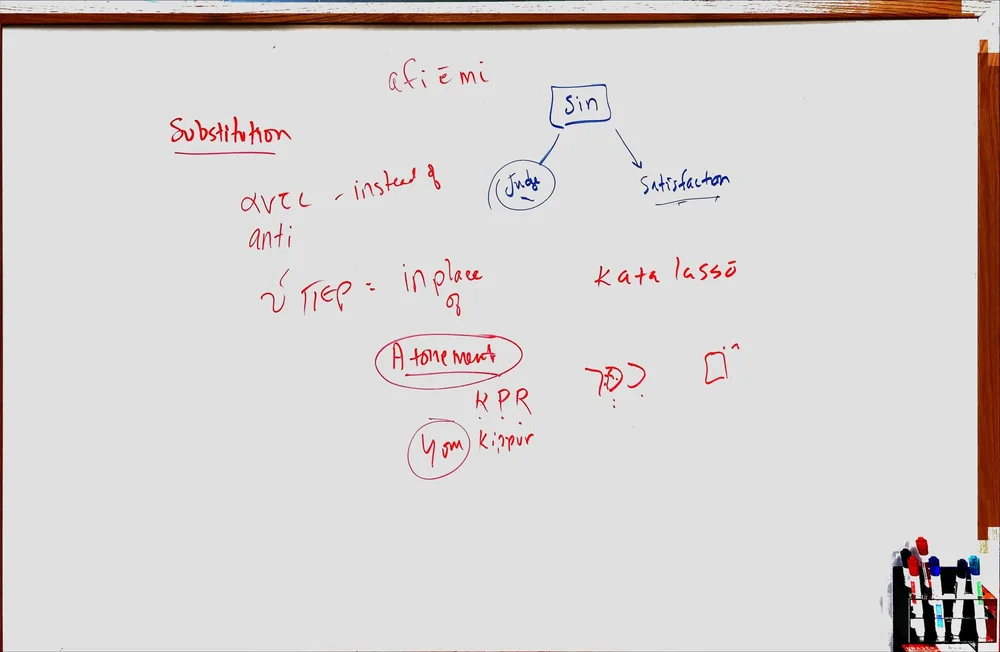 afiēmi
Sin
Substitution
Judge
Satisfaction
αντι - instead of
anti
ὑπερ = in place
of
katalassō
Atonement
KPR
כפר
Yom Kippur